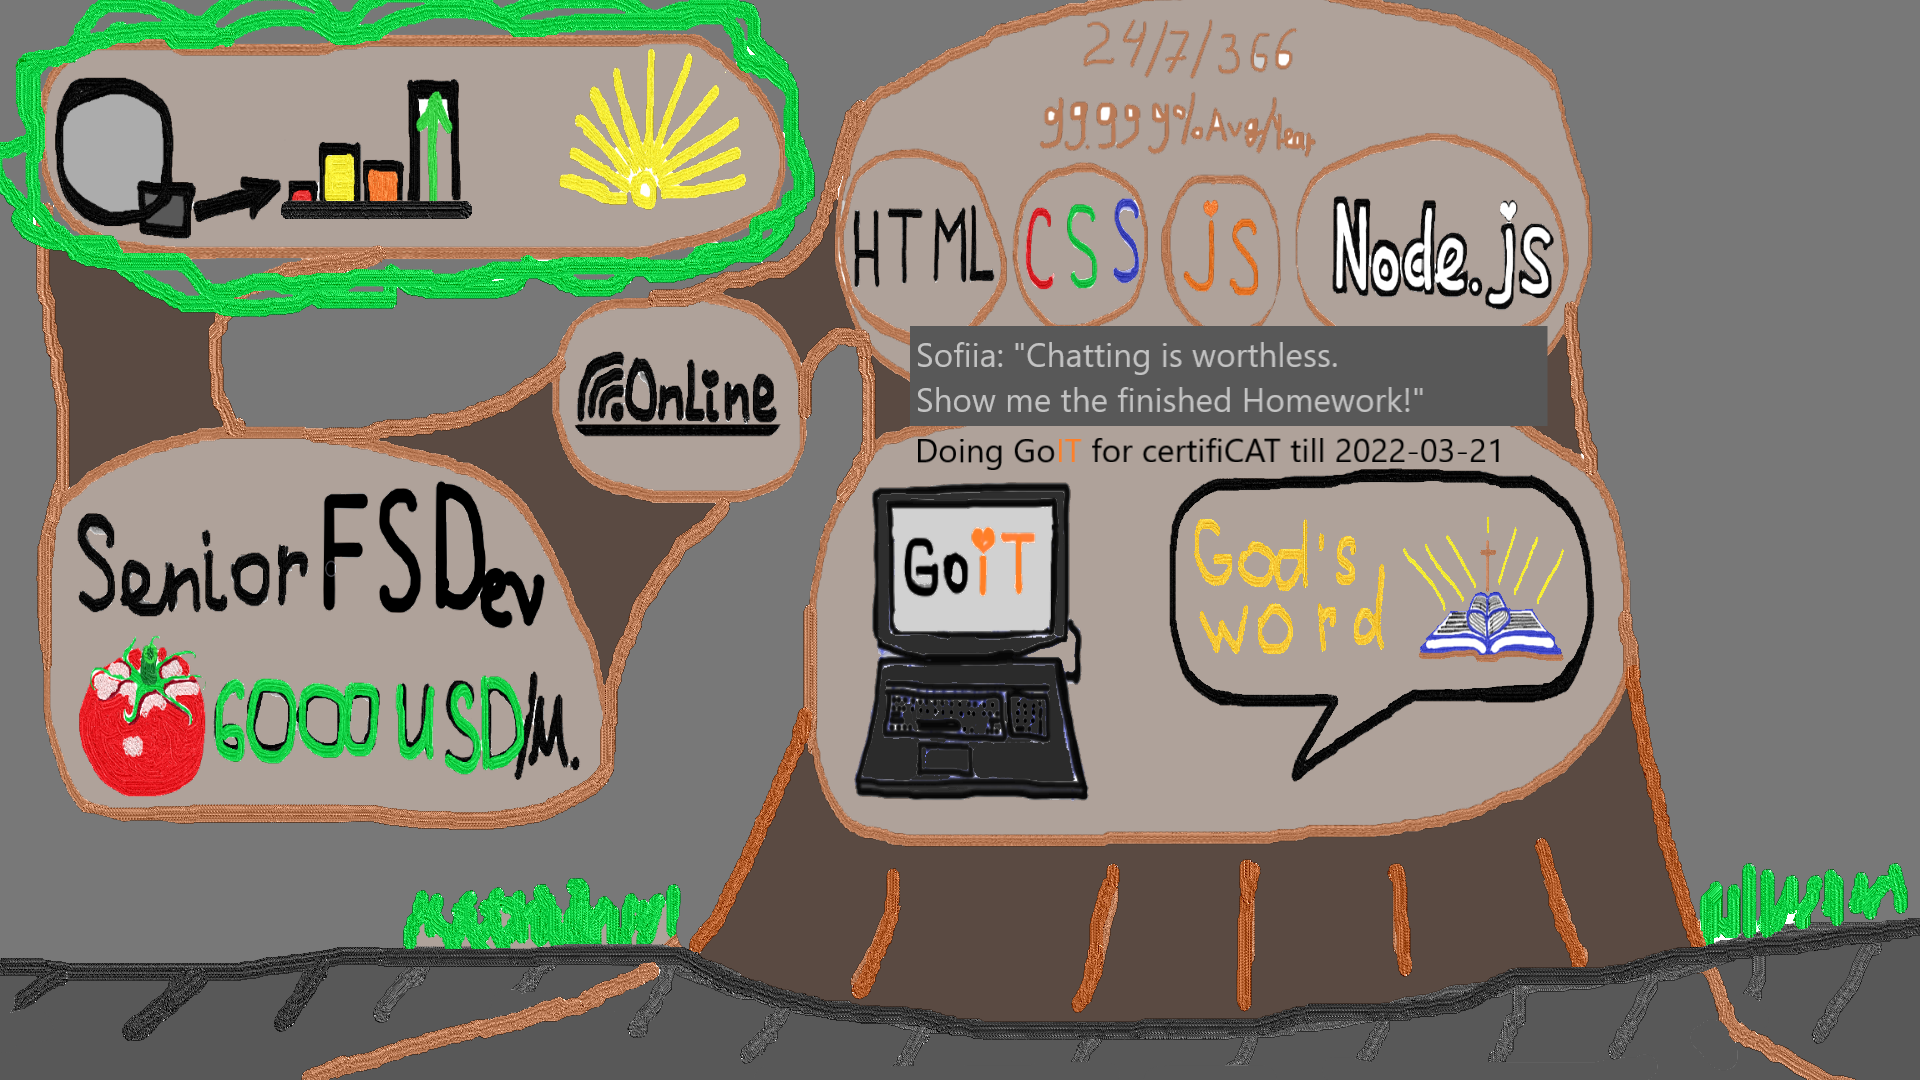 24/7/366
99.999%Avg/Year
HTML
CSS
js
Node.js
Sofiia: "Chatting is worthless.
Show me the finished Homework!"
OnLine
Doing GoIT for certifiCAT till 2022-03-21
Senior FSDev
6000 USD/M.
GoiT
God's
word